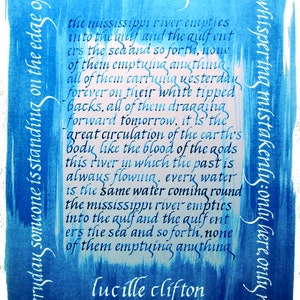 the mississippi river empties
into the gulf and the gulf ent
ers the sea and so forth, none
of them emptying anything,
all of them carrying yesterday
forever on their white tipped
backs, all of them dragging
forward tomorrow. it is the
great circulation of the earth's
body, like the blood of the gods
this river in which the past is
always flowing. every water
is the same water coming round
the mississippi river empties
into the gulf and the gulf ent
ers the sea and so forth, none
of them emptying anything
lucille clifton
everyday someone is standing on the edge of
whispering mistakenly: only here. only